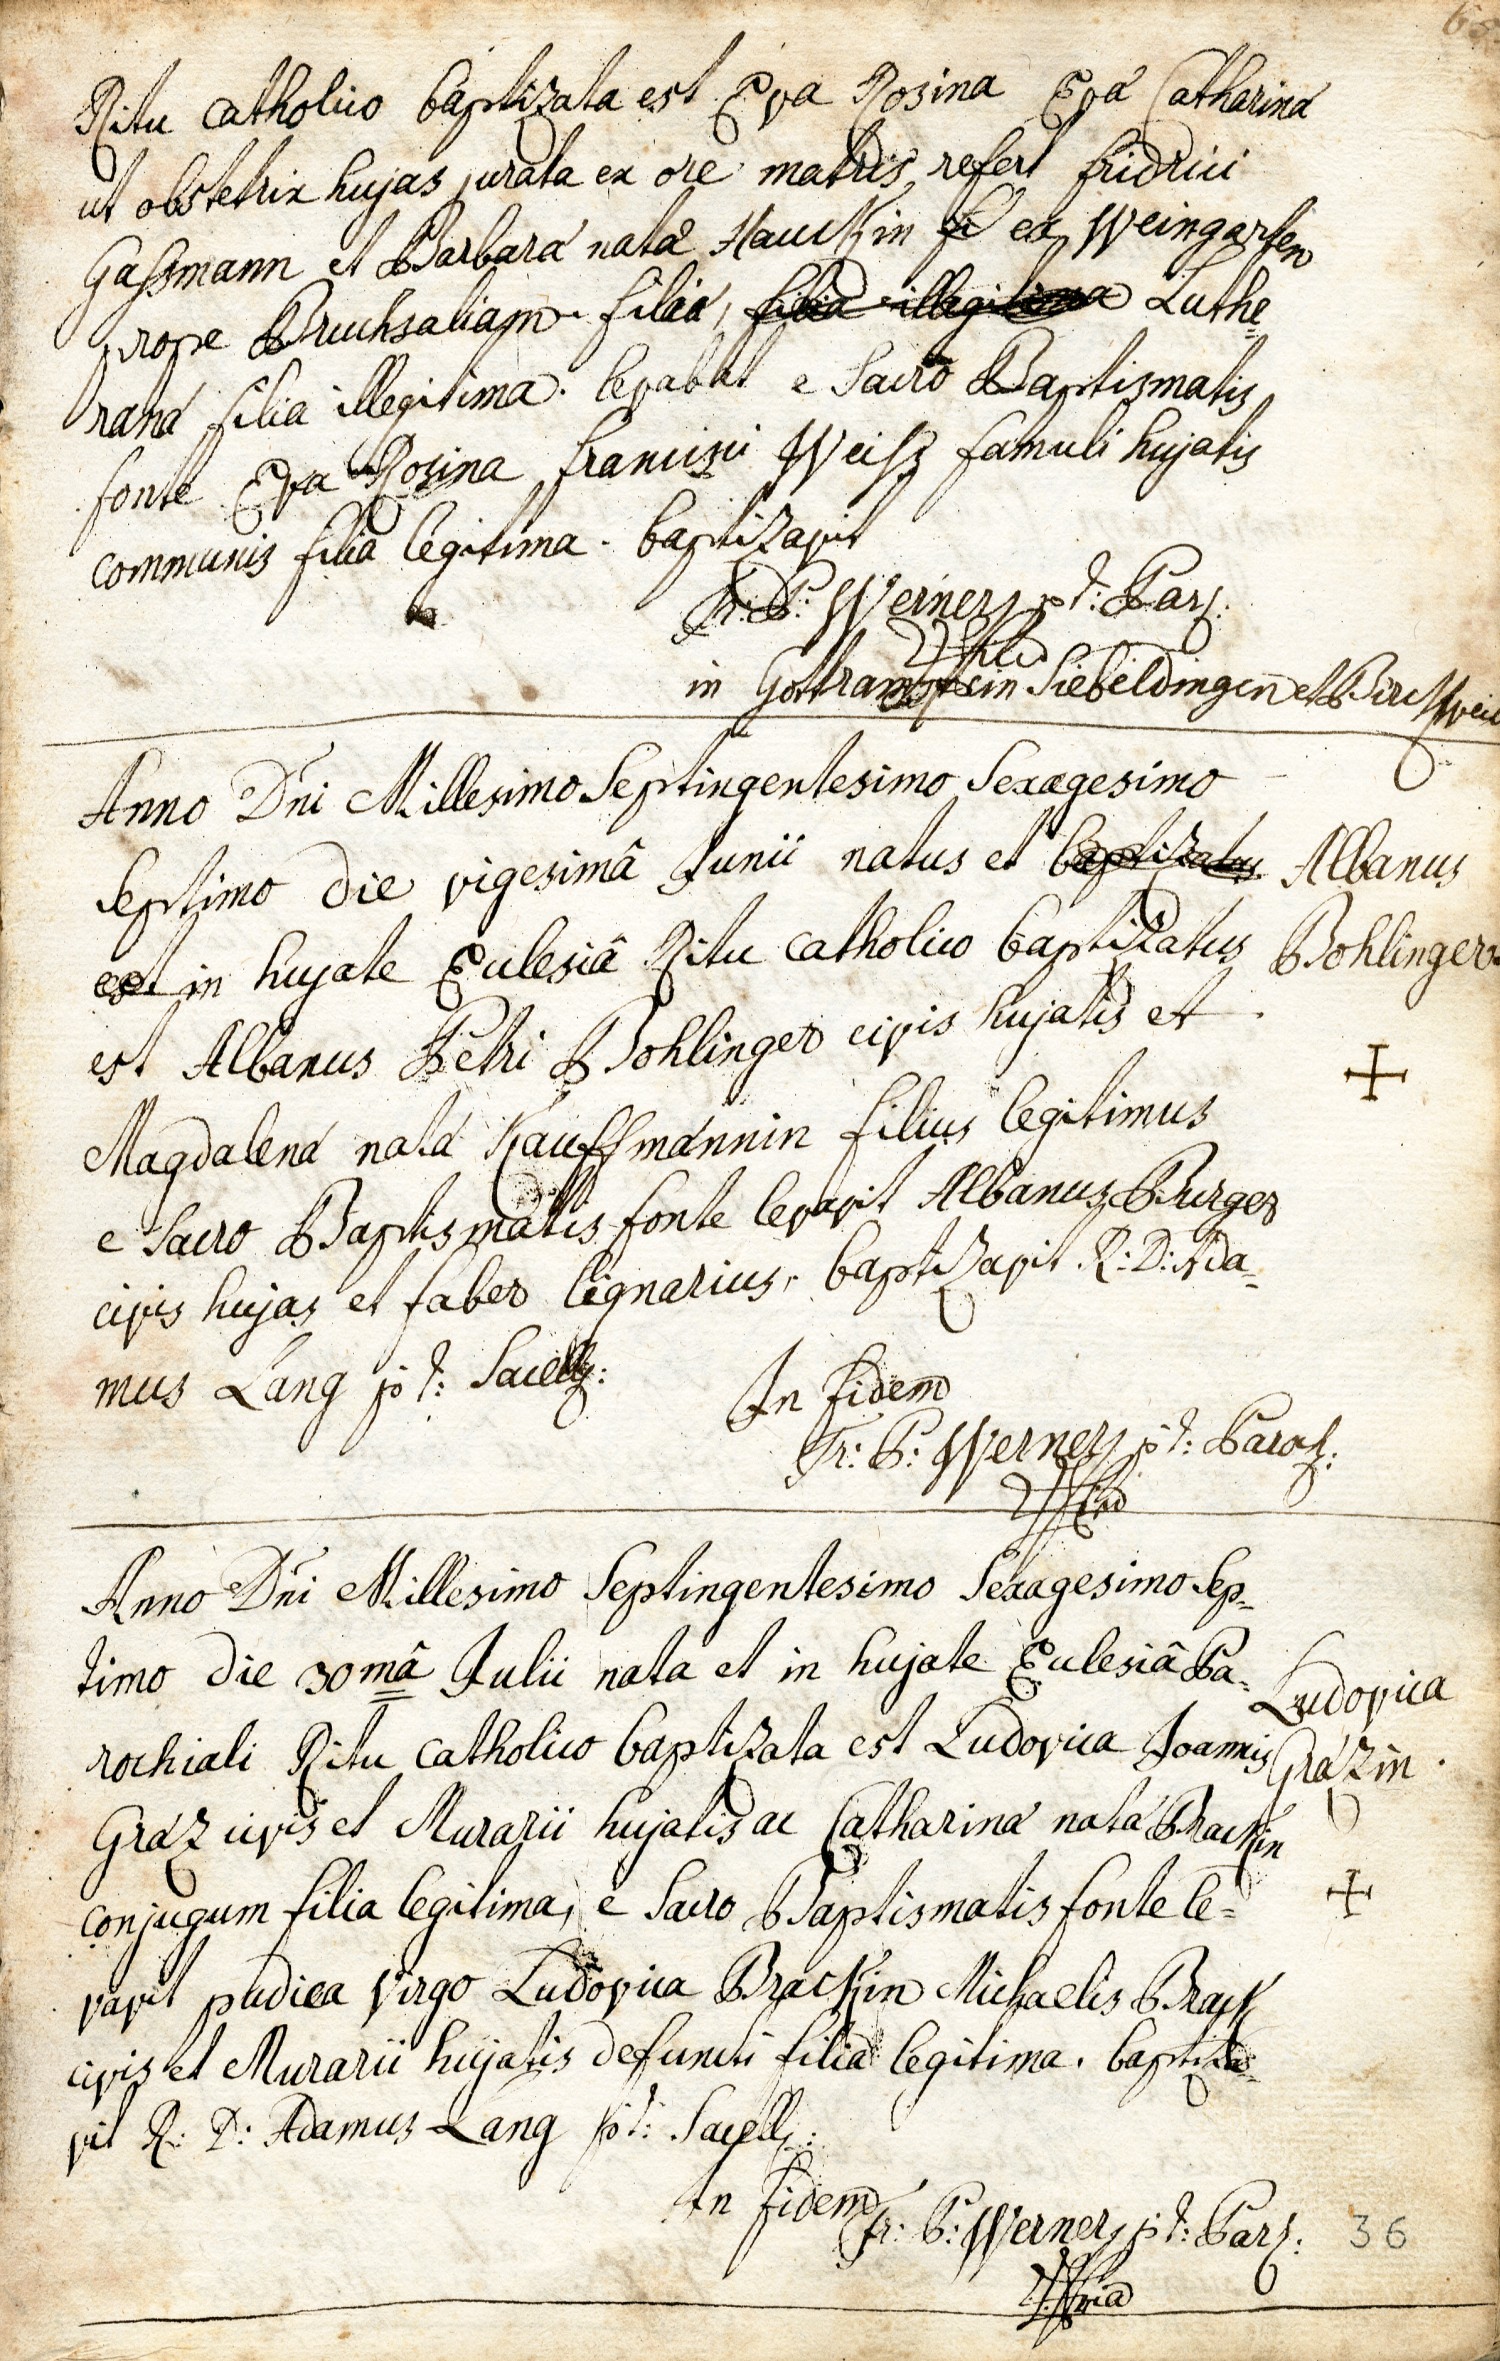 68.
Ritu catholico baptizata est Eva Rosina Eva Catharina
ut obstetrix hujas jurata ex ore matris refert fridrici
Gaßmann et Barbara nata Hauckin ex Weingarten
prope Bruchsaliam filia, filia illegitima Luthe=
rana filia illegitima. levabat e Sacro Baptismatis
fonte Eva Rosina francisci Weiß famuli hujatis
communis filia legitima. baptizavit
Fr: P: Werner p t: Par:
in Gottramstein Siebeldingen et Birckweil
Anno Dñi Millesimo Septingentesimo Sexagesimo
septimo die vigesimâ Junii natus et baptizatus
est in hujate Ecclesiâ Ritu catholico baptizatus
est Albanus Petri Bohlinger civis hujatis et
Magdalena nata Kauffmannin filius legitimus
e Sacro Baptismatis fonte levavit Albanus Burger
civis hujas et faber lignarius, baptizavit R: D: Ada=
mus Lang p t: Sacell:
In fidem
Fr: P: Werner p t: Paroch:
Albanus
Bohlinger.
Anno Dñi Millesimo Septingentesimo Sexagesimo Sep=
timo die 30mâ Julii nata et in hujate Ecclesiâ Pa=
rochiali Ritu catholico baptizata est Ludovica Joannis
Graz civis et Murarii hujatis ac Catharina nata Brackin
conjugum filia legitima, e Sacro Baptismatis fonte le=
vavit pudica virgo Ludovica Brackin Michaelis Brack
civis et Murarii hujatis defuncti filia legitima. baptiza=
vit R: D: Adamus Lang p t: Sacell:
In fidem
Fr: P: Werner p t: Par:
Ludovica
Grazin.
36